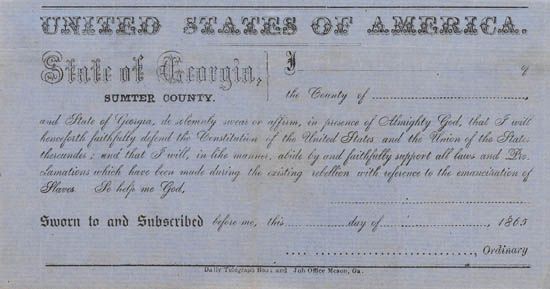 UNITED STATES OF AMERICA.
State of Georgia,
SUMTER COUNTY.
I
of
the County of
and State of Georgia, do solemnly swear or affirm, in presence of Almighty God, that I will
henceforth faithfully defend the Constitution of the United States and the Union of the States
thereunder; and that I will, in like manner, abide by and faithfully support all laws and Pro-
lamations which have been made during the existing rebellion with reference to the emancipation of
Slaves. So help me God,
Sworn to and Subscribed before me, this day of , 1865
, Ordinary
Daily Telegraph Book and Job Office Macon, Ga.